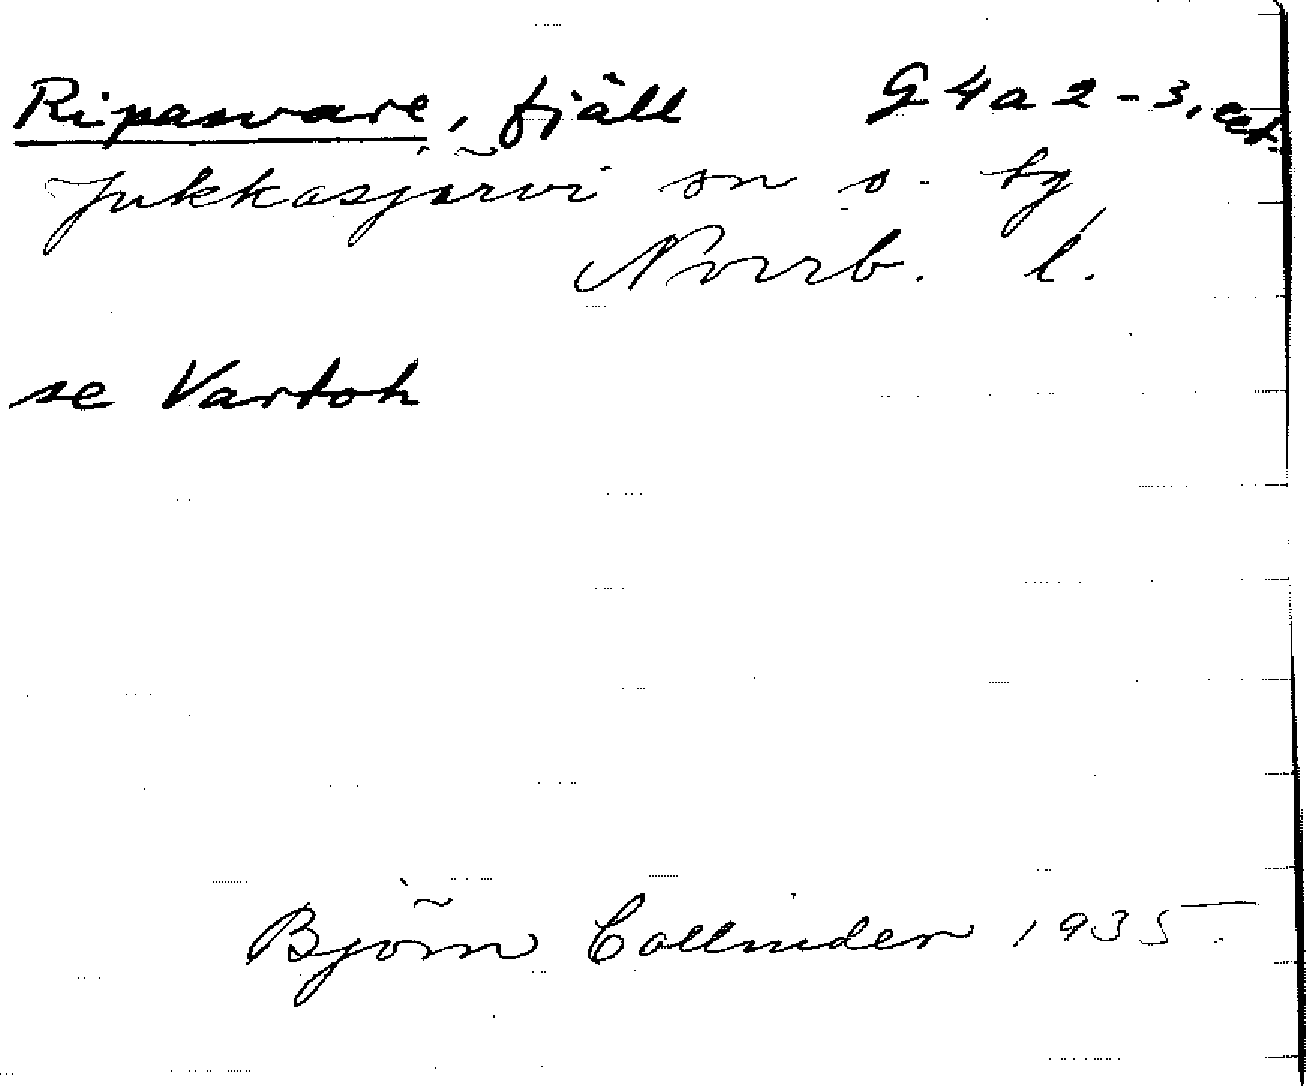 Ripasvare, fjäll G4a2-3, cet.
Jukkasjärvi sn o. tg
Norrb. l.
se Vartoh
Björn Collinder 1935